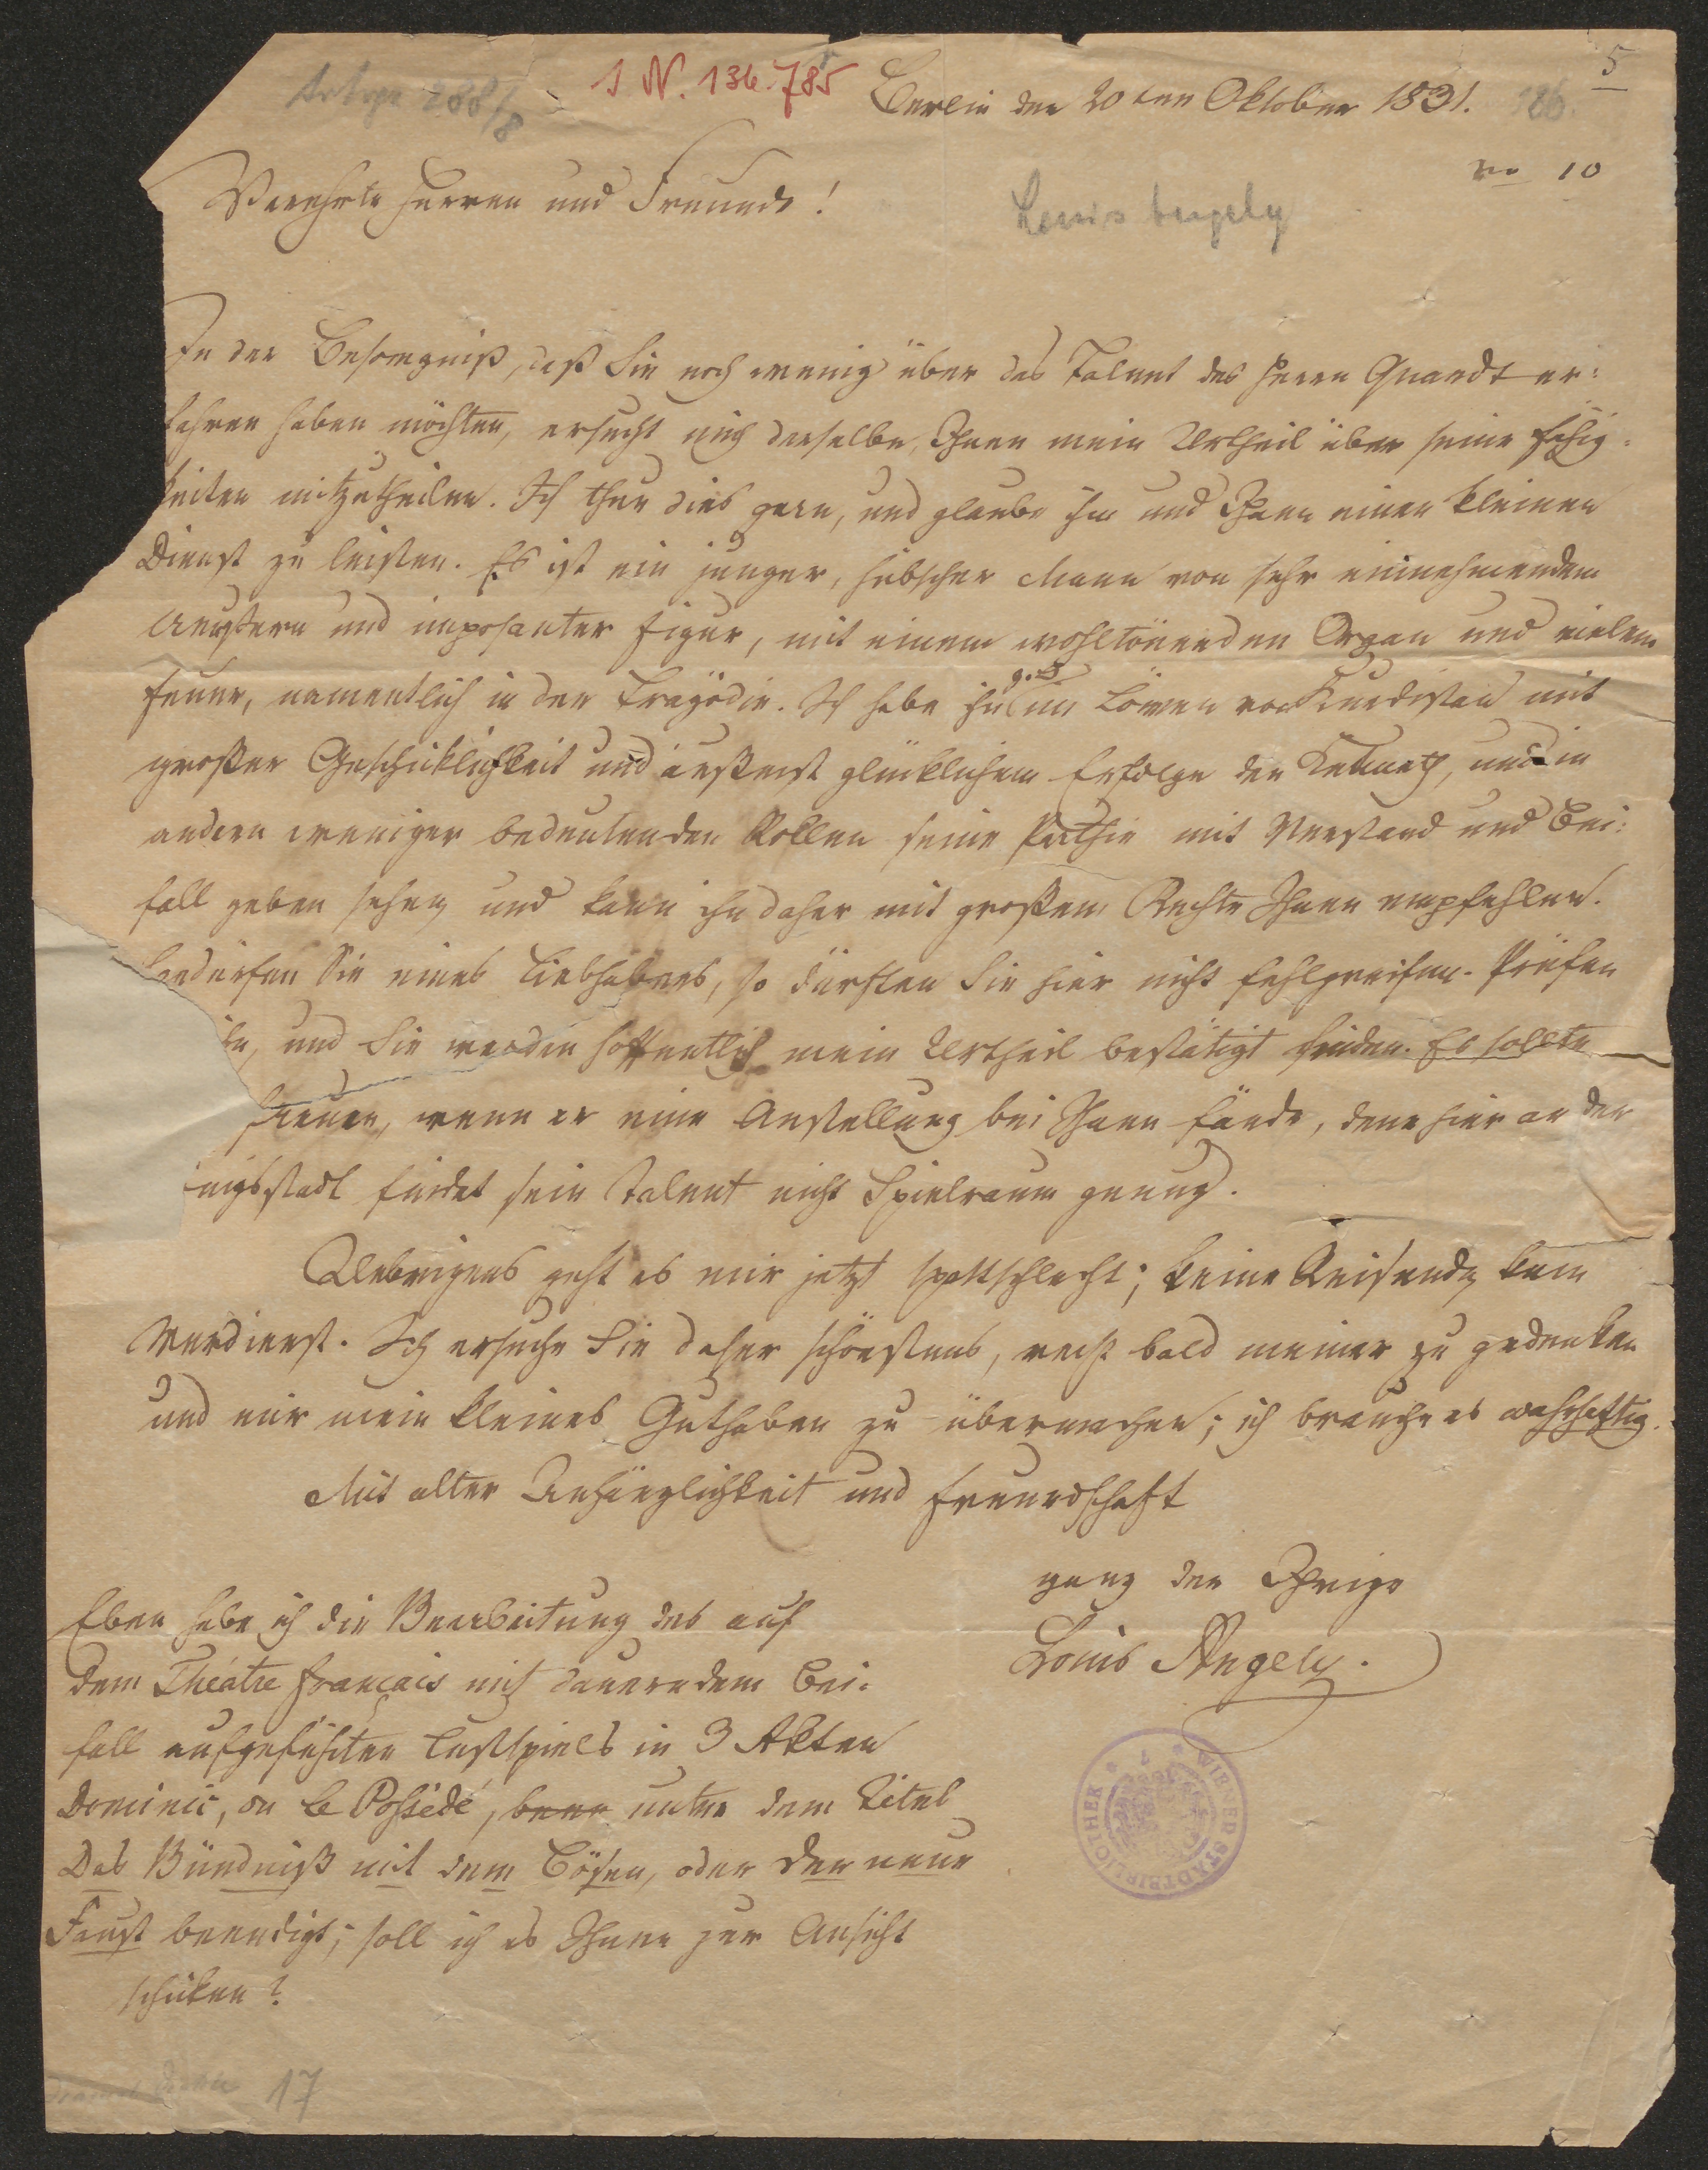 I N. 136.785
Berlin den 20ten Oktober 1831.
5
186.
10
Verehrte Herren und Freunde!
Louis Angely
In der Besorgniß, daß Sie noch wenig über das Talent des Herrn Quandt er:
fahren haben möchten, ersucht mich derselbe, Ihnen mein Urtheil über seine Fähig:
keiten mitzutheilen. Ich thue dies gern, und glaube ihm und Ihnen einen kleinen
Dienst zu leisten. Es ist ein junger, hübscher Mann von sehr einnehmendem
Aeußern und imposanter Figur, mit einem wohltönenden Organ und vielem
Feuer, namentlich in der Tragödie. Ich habe ihn z. B. im Löwen von Kurdistan mit
großer Geschicklichkeit und äußerst glücklichem Erfolge den Kenneth, und in
andern weniger bedeutenden Rollen seine Parthie mit Verstand und Bei:
fall geben sehen, und kann ihn daher mit großem Rechte Ihnen empfehlen.
Bedürfen Sie eines Liebhabers, so dürften Sie hier nicht fehlgreifen. Prüfen
, und Sie werden hoffentlich mein Urtheil bestätigt finden. Es sollte
freuen, wenn er eine Anstellung bei Ihnen fände, denn hier an der
nigsstadt findet sein Talent nicht Spielraum genug.
Uebrigens geht es mir jetzt spottschlecht; keine Reisende, kein
Verdienst. Ich ersuche Sie daher schönstens, recht bald meiner zu gedenken
und mir mein kleines Guthaben zu übermachen; ich brauche es wahrhaftig.
Mit alter Anhänglichkeit und Freundschaft
ganz der Ihrige
Louis Angely.
Eben habe ich die Bearbeitung des auf
dem Théatre français mit dauerndem Bei:
fall aufgeführten Lustspiels in 3 Akten
Dominic, ou le Possédé, unter dem Titel
Das Bündniß mit dem Bösen, oder der neue
Faust beendigt; soll ich es Ihnen zur Ansicht
schicken?
WIENER STADTBIBLIOTHEK
17